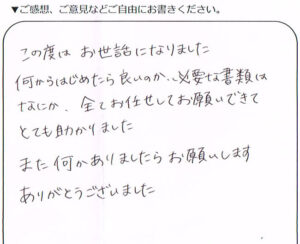 ▼ご感想、ご意見などご自由にお書きください。
この度は お世話になりました
何からはじめたら良いのか‥必要な書類は
なにか、全てお任せしてお願いできて
とても助かりました
また何かありましたら お願いします
ありがとうございました